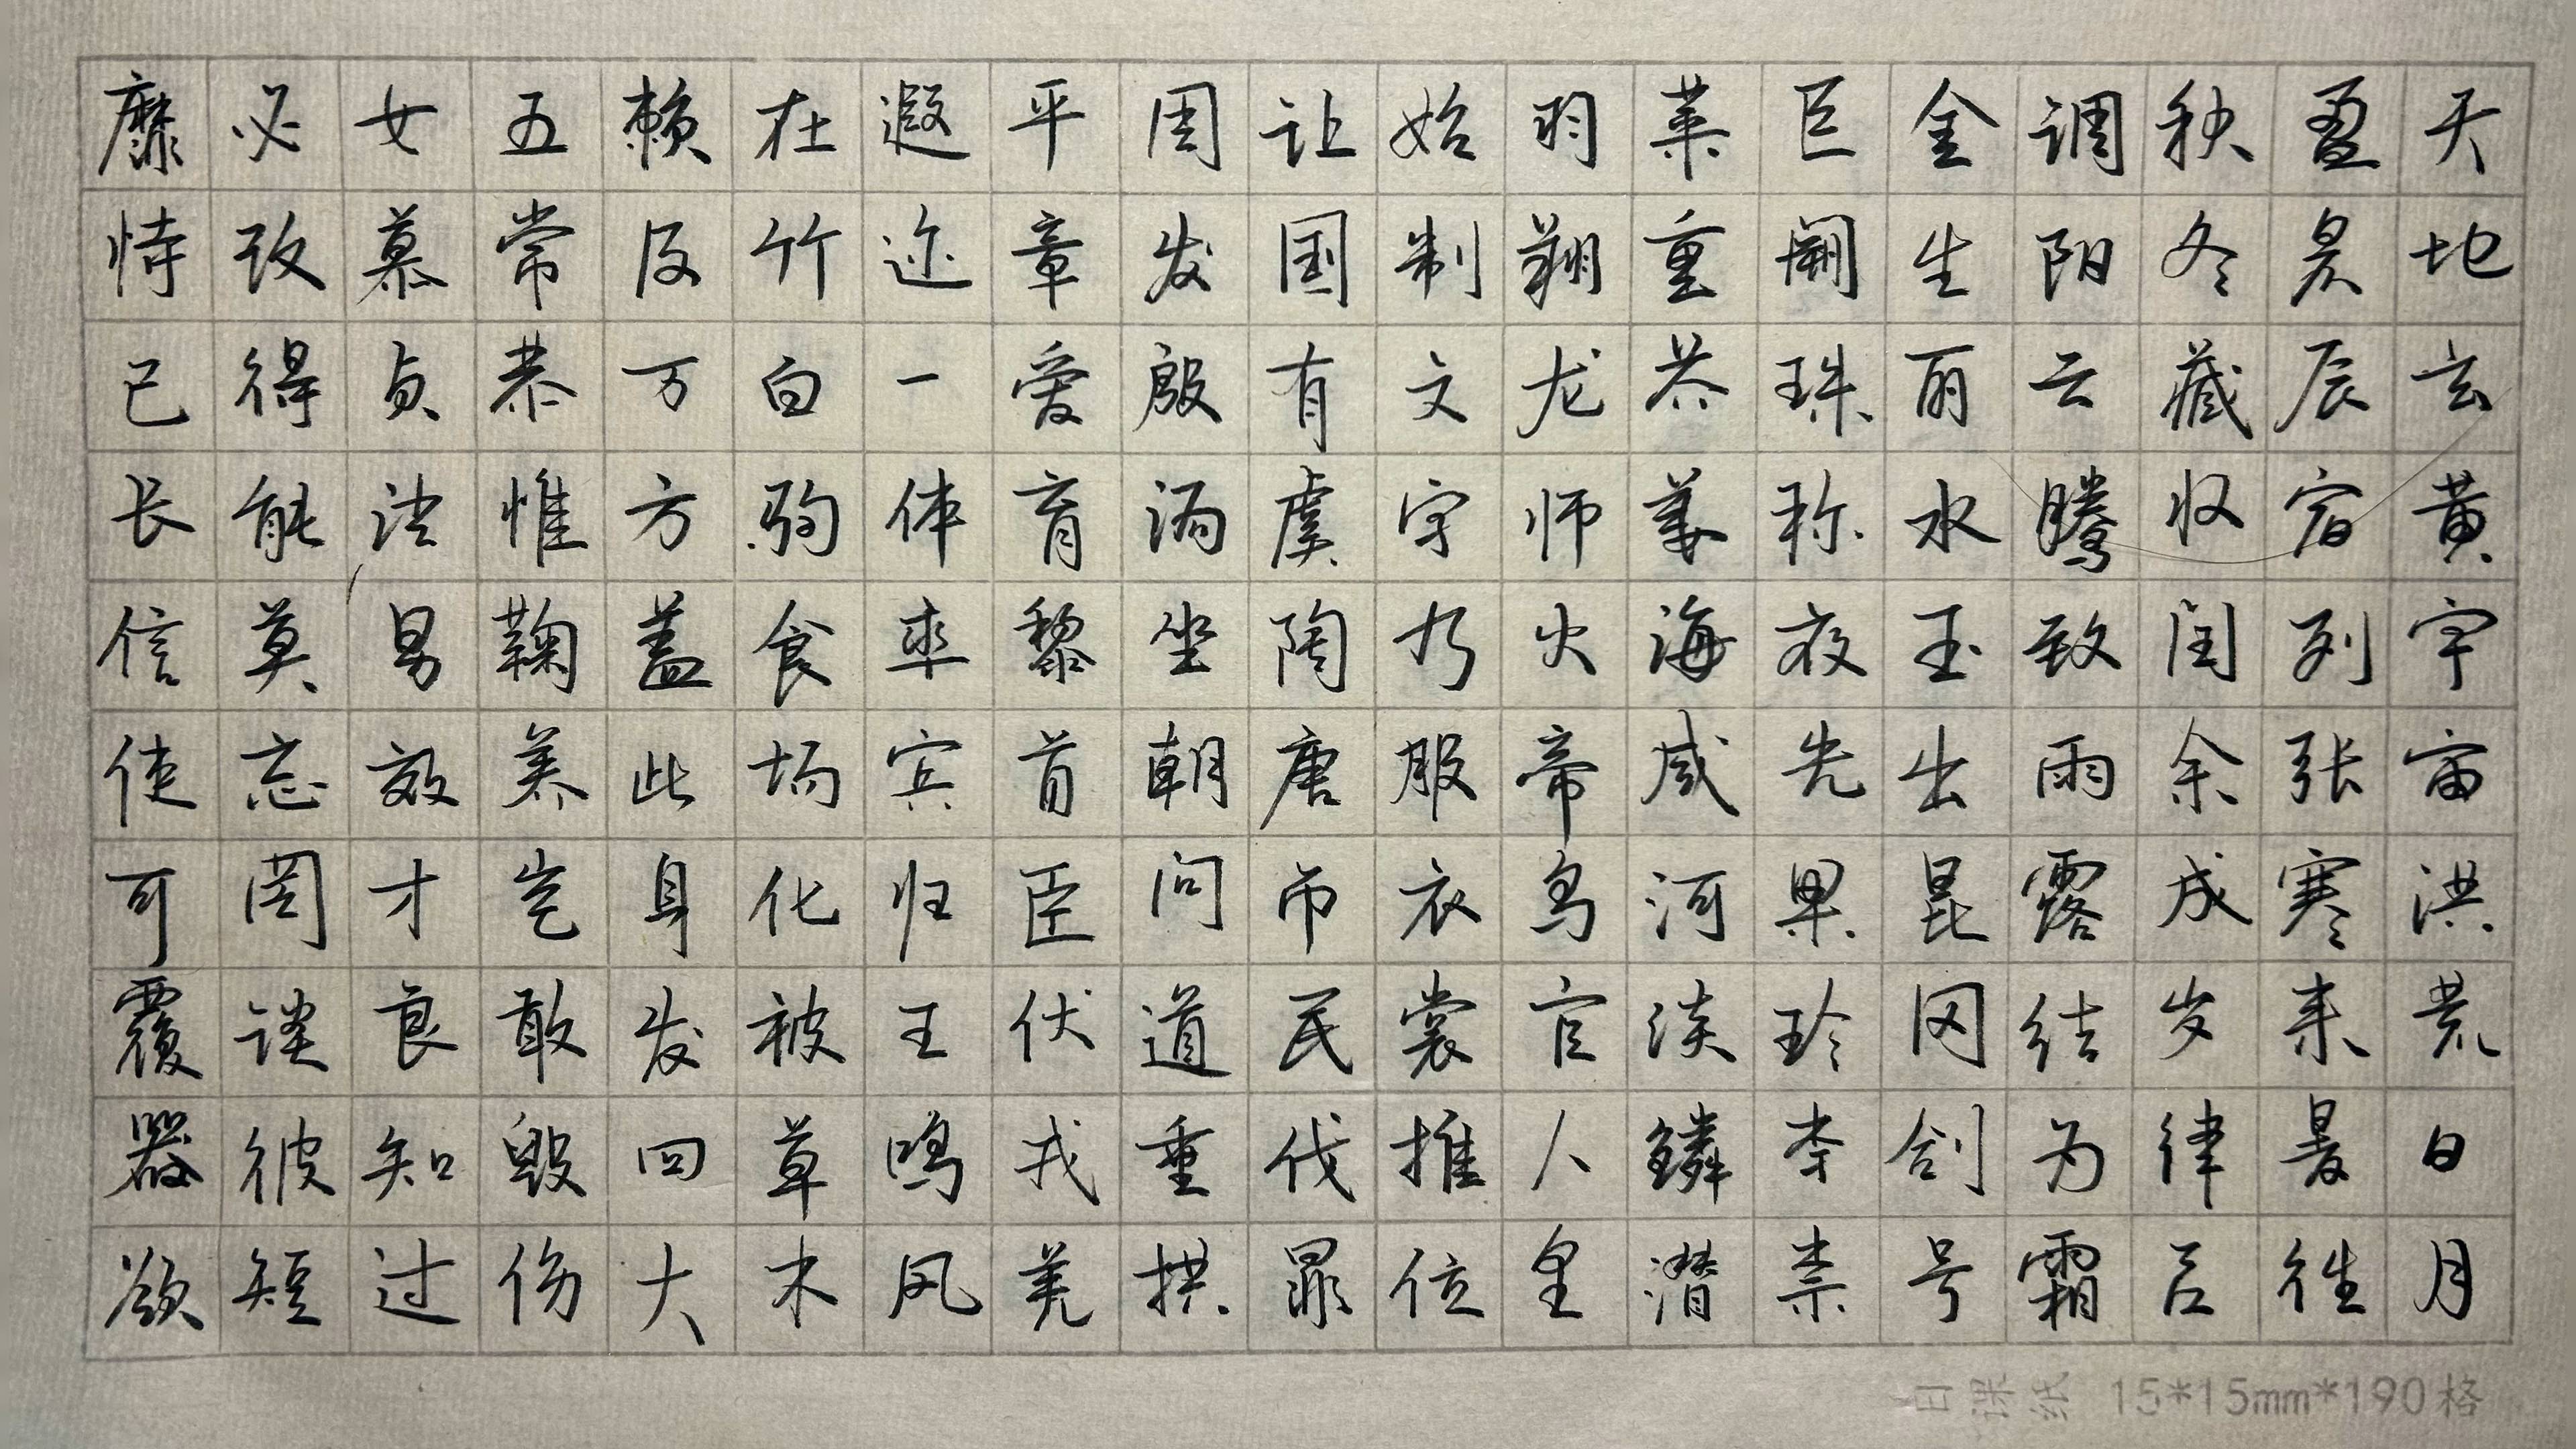 天地玄黄宇宙洪荒日月
盈昃辰宿列张寒来暑往
秋冬藏收闰余成岁律吕
调阳云腾致雨露结为霜
金生丽水玉出昆冈剑号
巨阙珠称夜光果珍李柰
菜重芥姜海咸河淡鳞潜
羽翔龙师火帝鸟官人皇
始制文字乃服衣裳推位
让国有虞陶唐吊民伐罪
周发殷汤坐朝问道垂拱
平章爱育黎首臣伏戎羌
遐迩一体率宾归王鸣凤
在竹白驹食场化被草木
赖及万方盖此身发四大
五常恭惟鞠养岂敢毁伤
女慕贞洁男效才良知过
必改得能莫忘罔谈彼短
靡恃己长信使可覆器欲
日课纸 15*15mm*190格